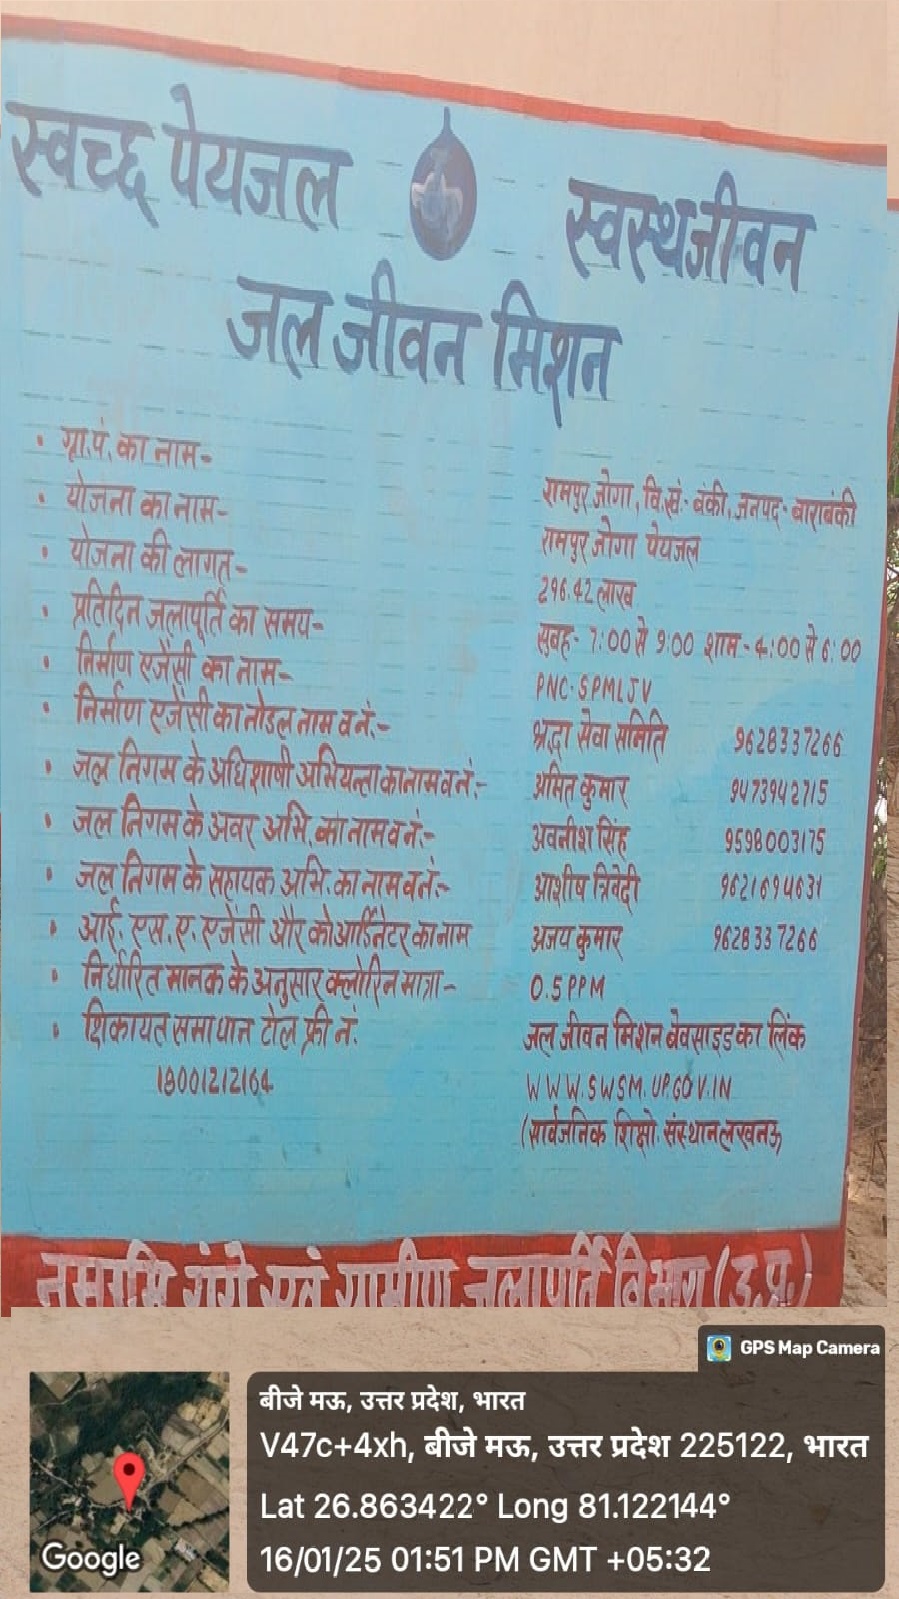 स्वच्छ पेयजल
स्वस्थजीवन
जल जीवन मिशन
• ग्रा.पं. का नाम-
रामपुर जोगा, वि.खं.- बंकी, जनपद- बाराबंकी
• योजना का नाम-
रामपुर जोगा पेयजल
• योजना की लागत-
296.42 लाख
• प्रतिदिन जलापूर्ति का समय-
सुबह- 7:00 से 9:00 शाम- 4:00 से 6:00
• निर्माण एजेंसी का नाम-
PNC-SPMLJV
• निर्माण एजेंसी का नोडल नाम व नं.-
श्रद्धा सेवा समिति 9628337266
• जल निगम के अधिशाषी अभियन्ता का नाम व नं:-
अमित कुमार 9473942715
• जल निगम के अवर अभि. का नाम व नं:-
अवनीश सिंह 9598003175
• जल निगम के सहायक अभि. का नाम व नं:-
आशीष त्रिवेदी 9621694631
• आई. एस. ए. एजेंसी और कोआर्डिनेटर का नाम
अजय कुमार 9628337266
• निर्धारित मानक के अनुसार क्लोरिन मात्रा-
0.5 PPM
• शिकायत समाधान टोल फ्री नं.
18001212164
जल जीवन मिशन बेवसाइड का लिंक
WWW.SWSM.UP.GOV.IN
(सार्वजनिक शिक्षो. संस्थान लखनऊ
नमामि गंगे एवं ग्रामीण जलापूर्ति विभाग (उ.प्र.)
GPS Map Camera
बीजे मऊ, उत्तर प्रदेश, भारत
V47c+4xh, बीजे मऊ, उत्तर प्रदेश 225122, भारत
Lat 26.863422° Long 81.122144°
16/01/25 01:51 PM GMT +05:32
Google